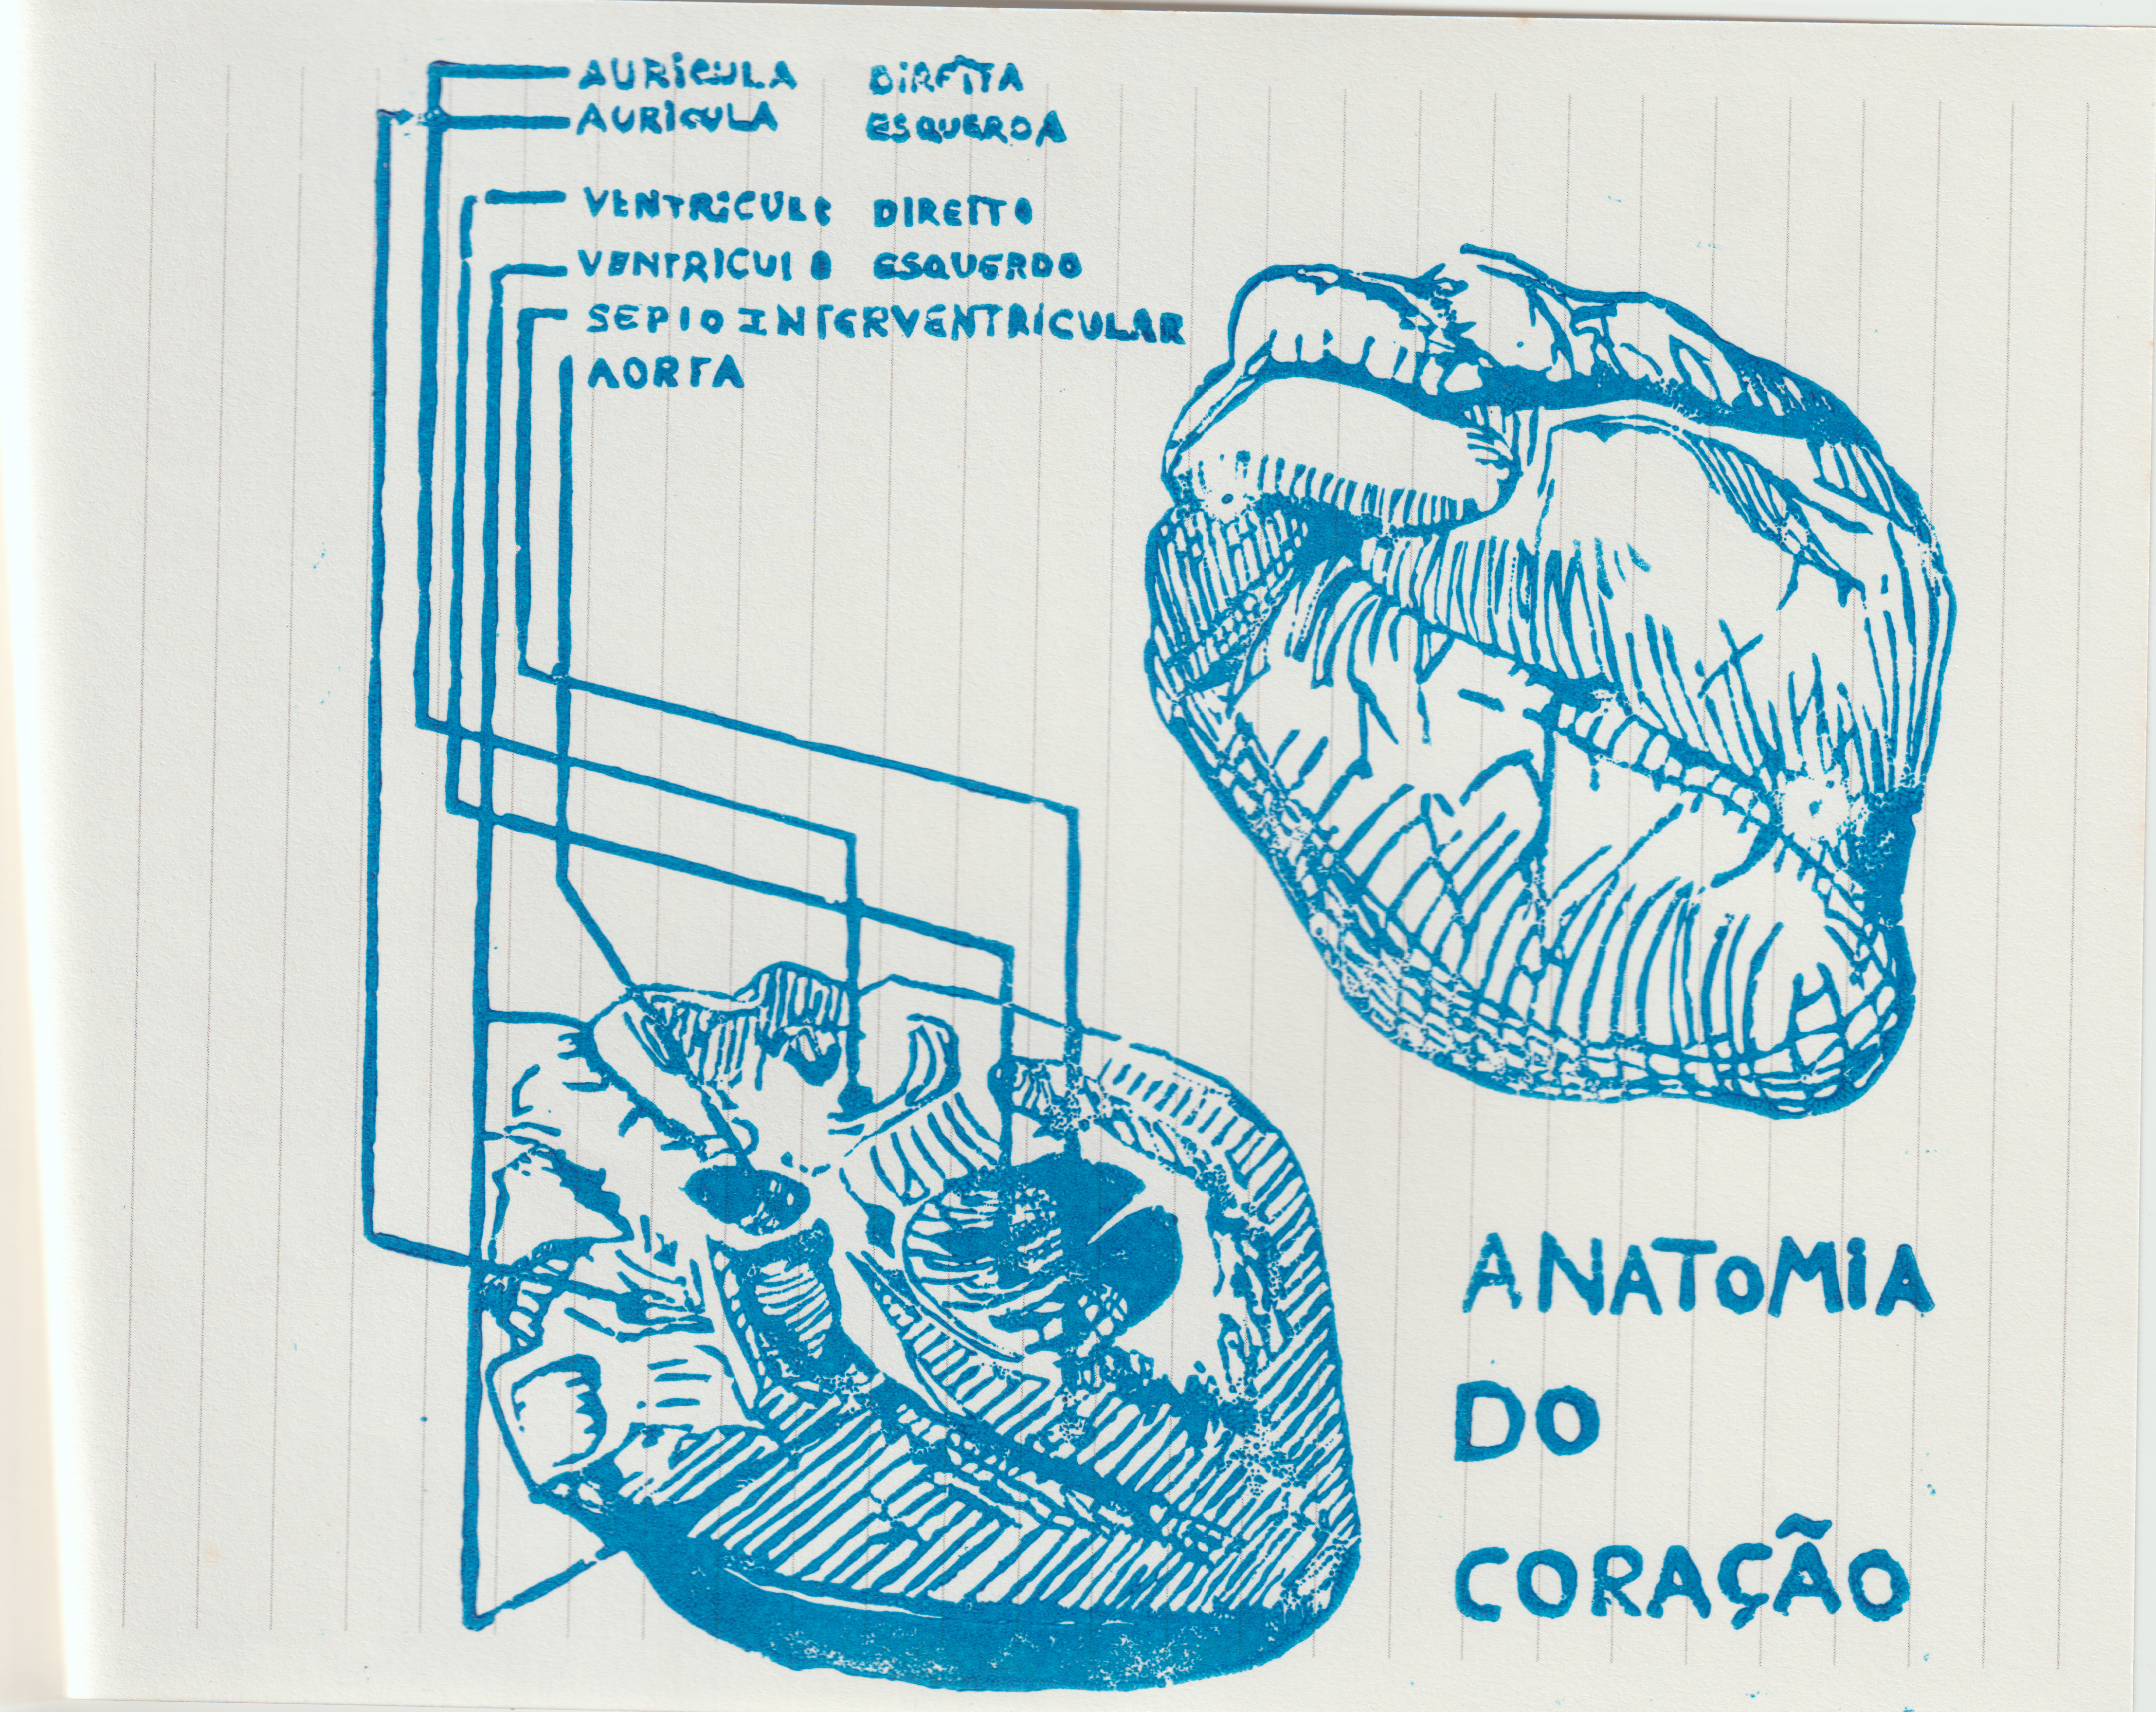 AURÍCULA DIREITA
AURÍCULA ESQUERDA
VENTRÍCULO DIREITO
VENTRICULO ESQUERDO
SEPTO INTERVENTRÍCULAR
AORTA
ANATOMIA
DO
CORAÇÃO